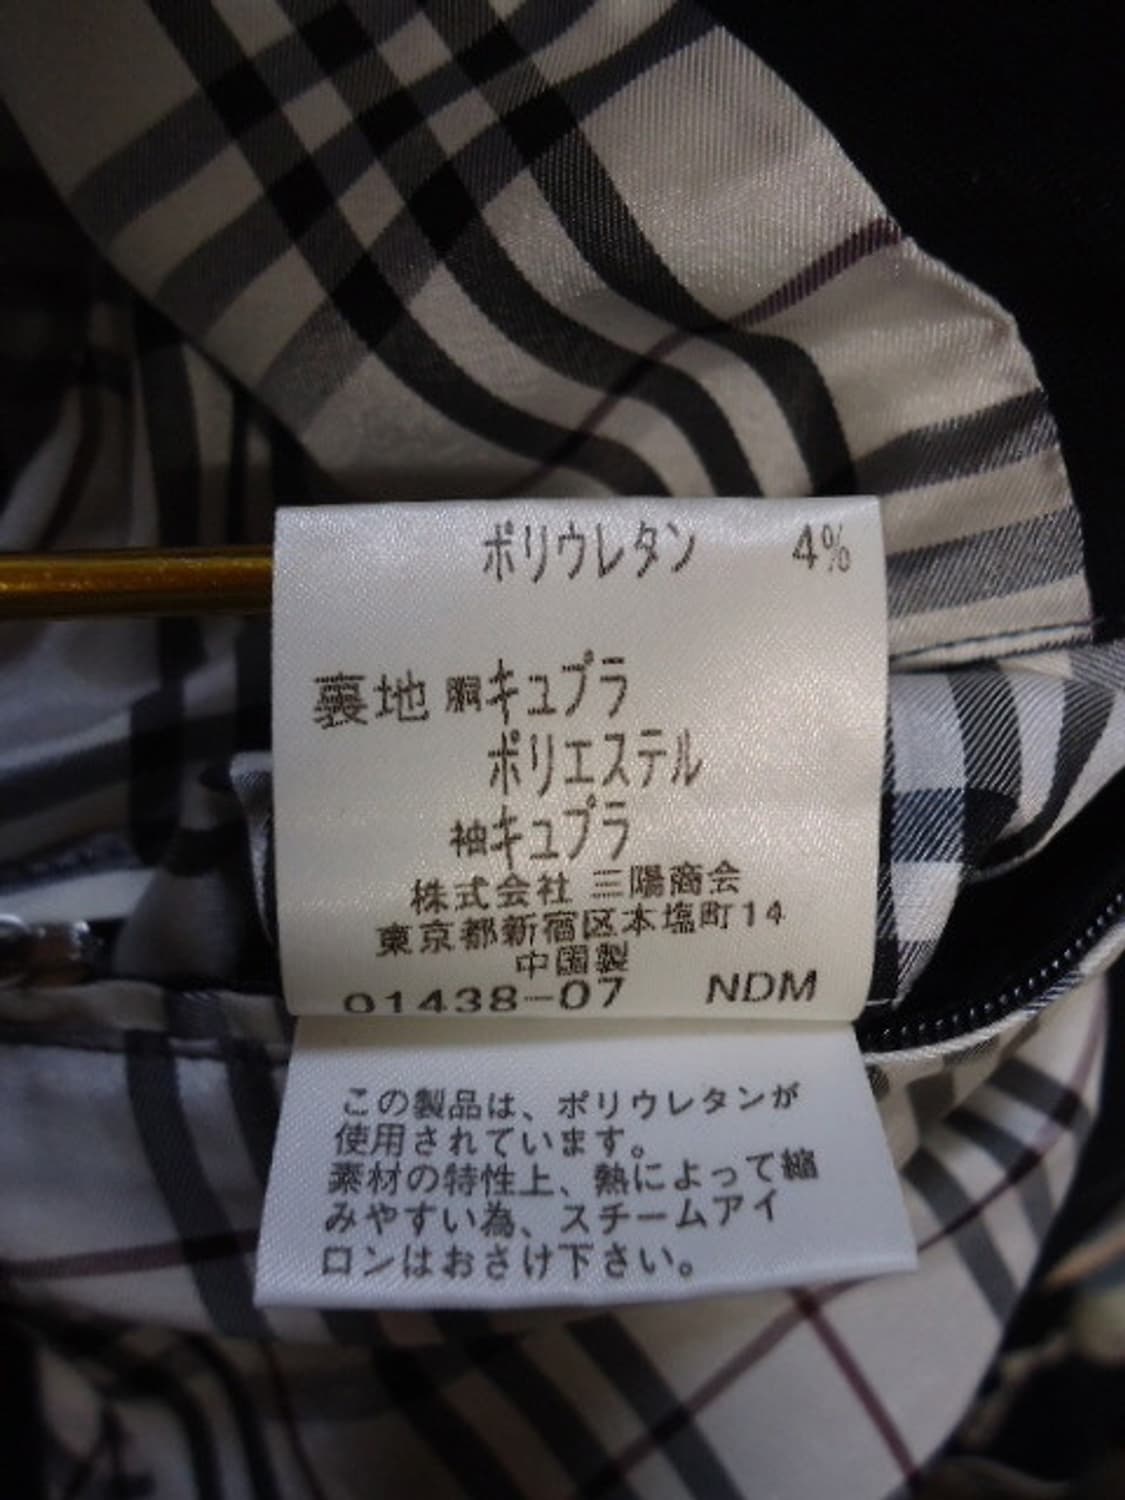 ポリウレタン 4%
裏地 胴キュプラ
ポリエステル
袖キュプラ
株式会社 三陽商会
東京都新宿区本塩町14
中国製
01438-07 NDM
この製品は、ポリウレタンが
使用されています。
素材の特性上、熱によって縮
みやすい為、スチームアイ
ロンはおさけ下さい。